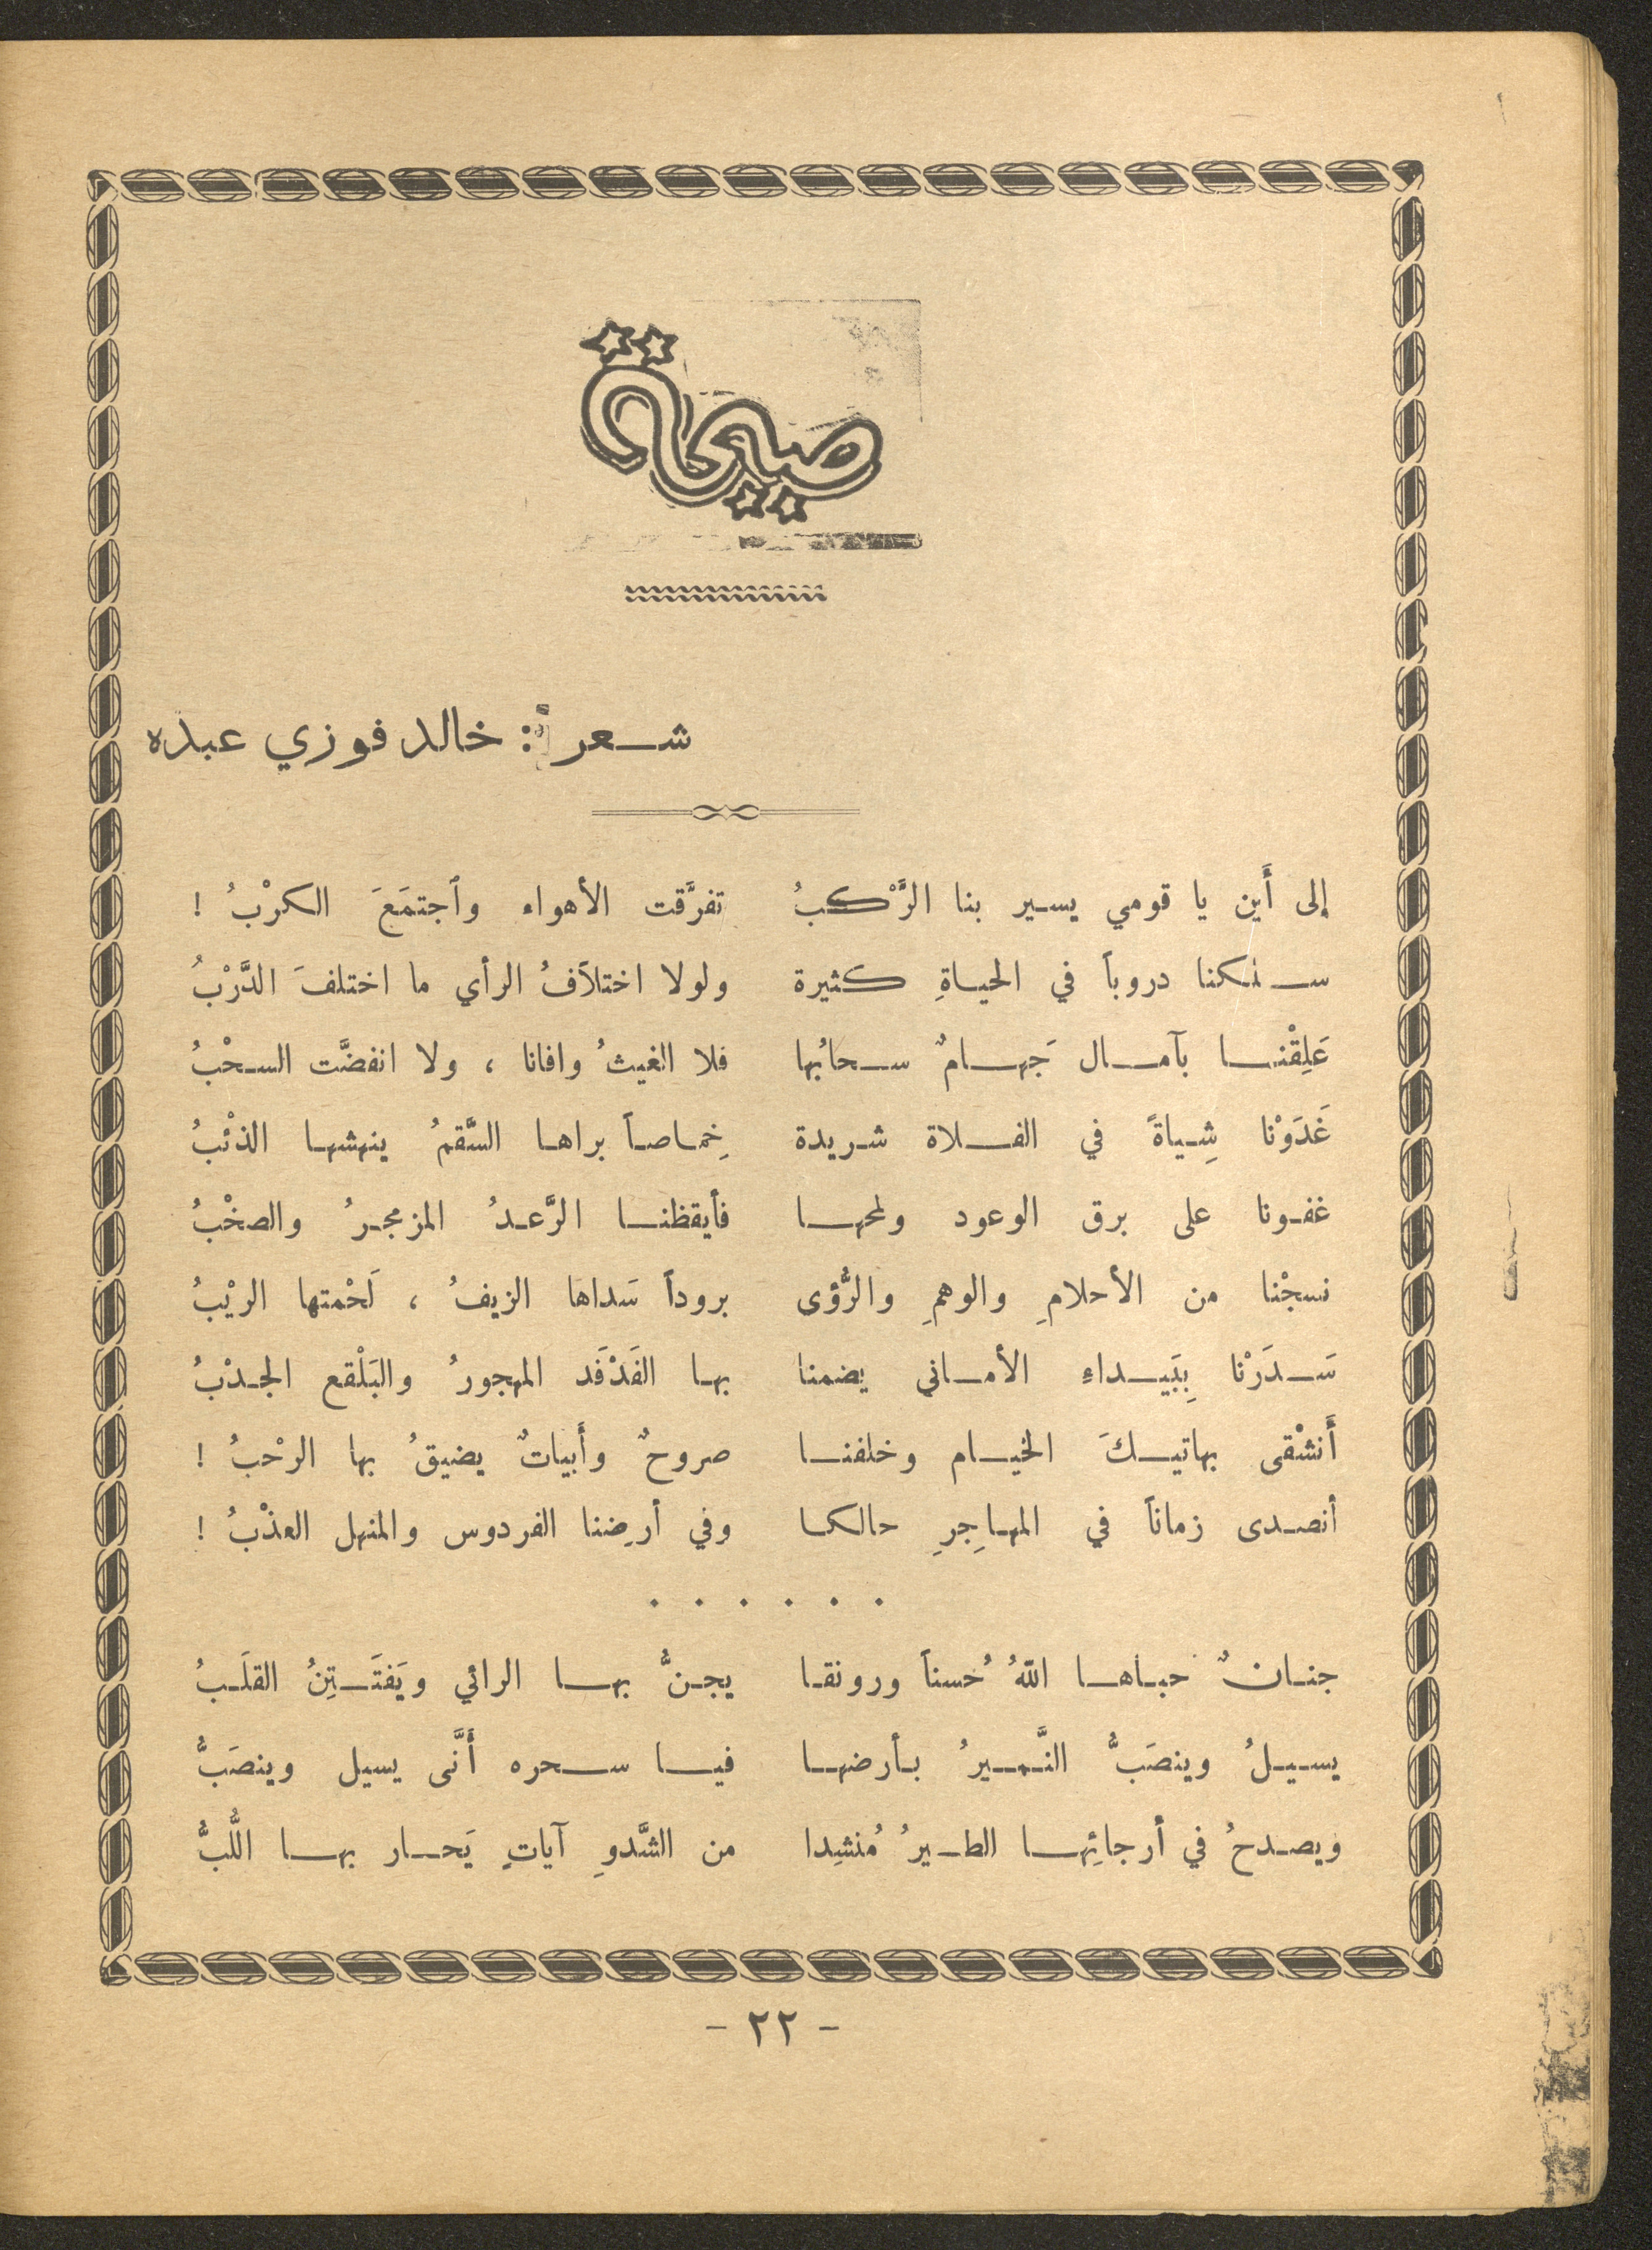 صيحة
شعر : خالد فوزي عبده
إلى أَين يا قومي يسير بنا الرَّكبُ تفرَّقت الأهواء وٱجتمَعَ الكرْبُ !
سلكنا دروباً في الحياةِ كثيرة ولولا اختلاَفُ الرأي ما اختلفَ الدَّرْبُ
عَلِقْنا بآمال جَهامٌ سحابُها فلا الغيثُ وافانا ، ولا انفضَّت السحْبُ
غَدَوْنا شِياهً في الفلاة شريدة خِماصاً براها السَّقمُ ينهشها الذئبُ
غفونا على برق الوعود ولمحها فأيقظنا الرَّعدُ المزمجرُ والصخْبُ
نسجْنا من الأحلامِ والوهمِ والرُّؤى بروداً سَداها الزيفُ ، لَحْمتها الريْبُ
سَدَرْنا بِبَيداءِ الأماني يضمنا بها الفَدْفَد المهجورُ والبَلْقع الجدْبُ
أَنشْقى بهاتيكَ الخيام وخلفنا صروحٌ وأَبياتٌ يضيقُ بها الرحْبُ !
أنصدى زماناً في المهاجِرِ حالكا وفي أرضِنا الفردوس والمنهل العذْبُ !
. . . . . .
جنانٌ حباها اللهُ حُسناً ورونقا يجنُّ بها الرائي ويَفتَتِنُ القلَبُ
يسيلُ وينصَبُّ النَّميرُ بأرضها فيا سحره أَنَّى يسيل وينصَبُّ
ويصدحُ في أرجائِها الطيرُ مُنشِدا من الشَّدوِ آياتٍ يَحار بها اللُّبُّ
- ٢٢ -